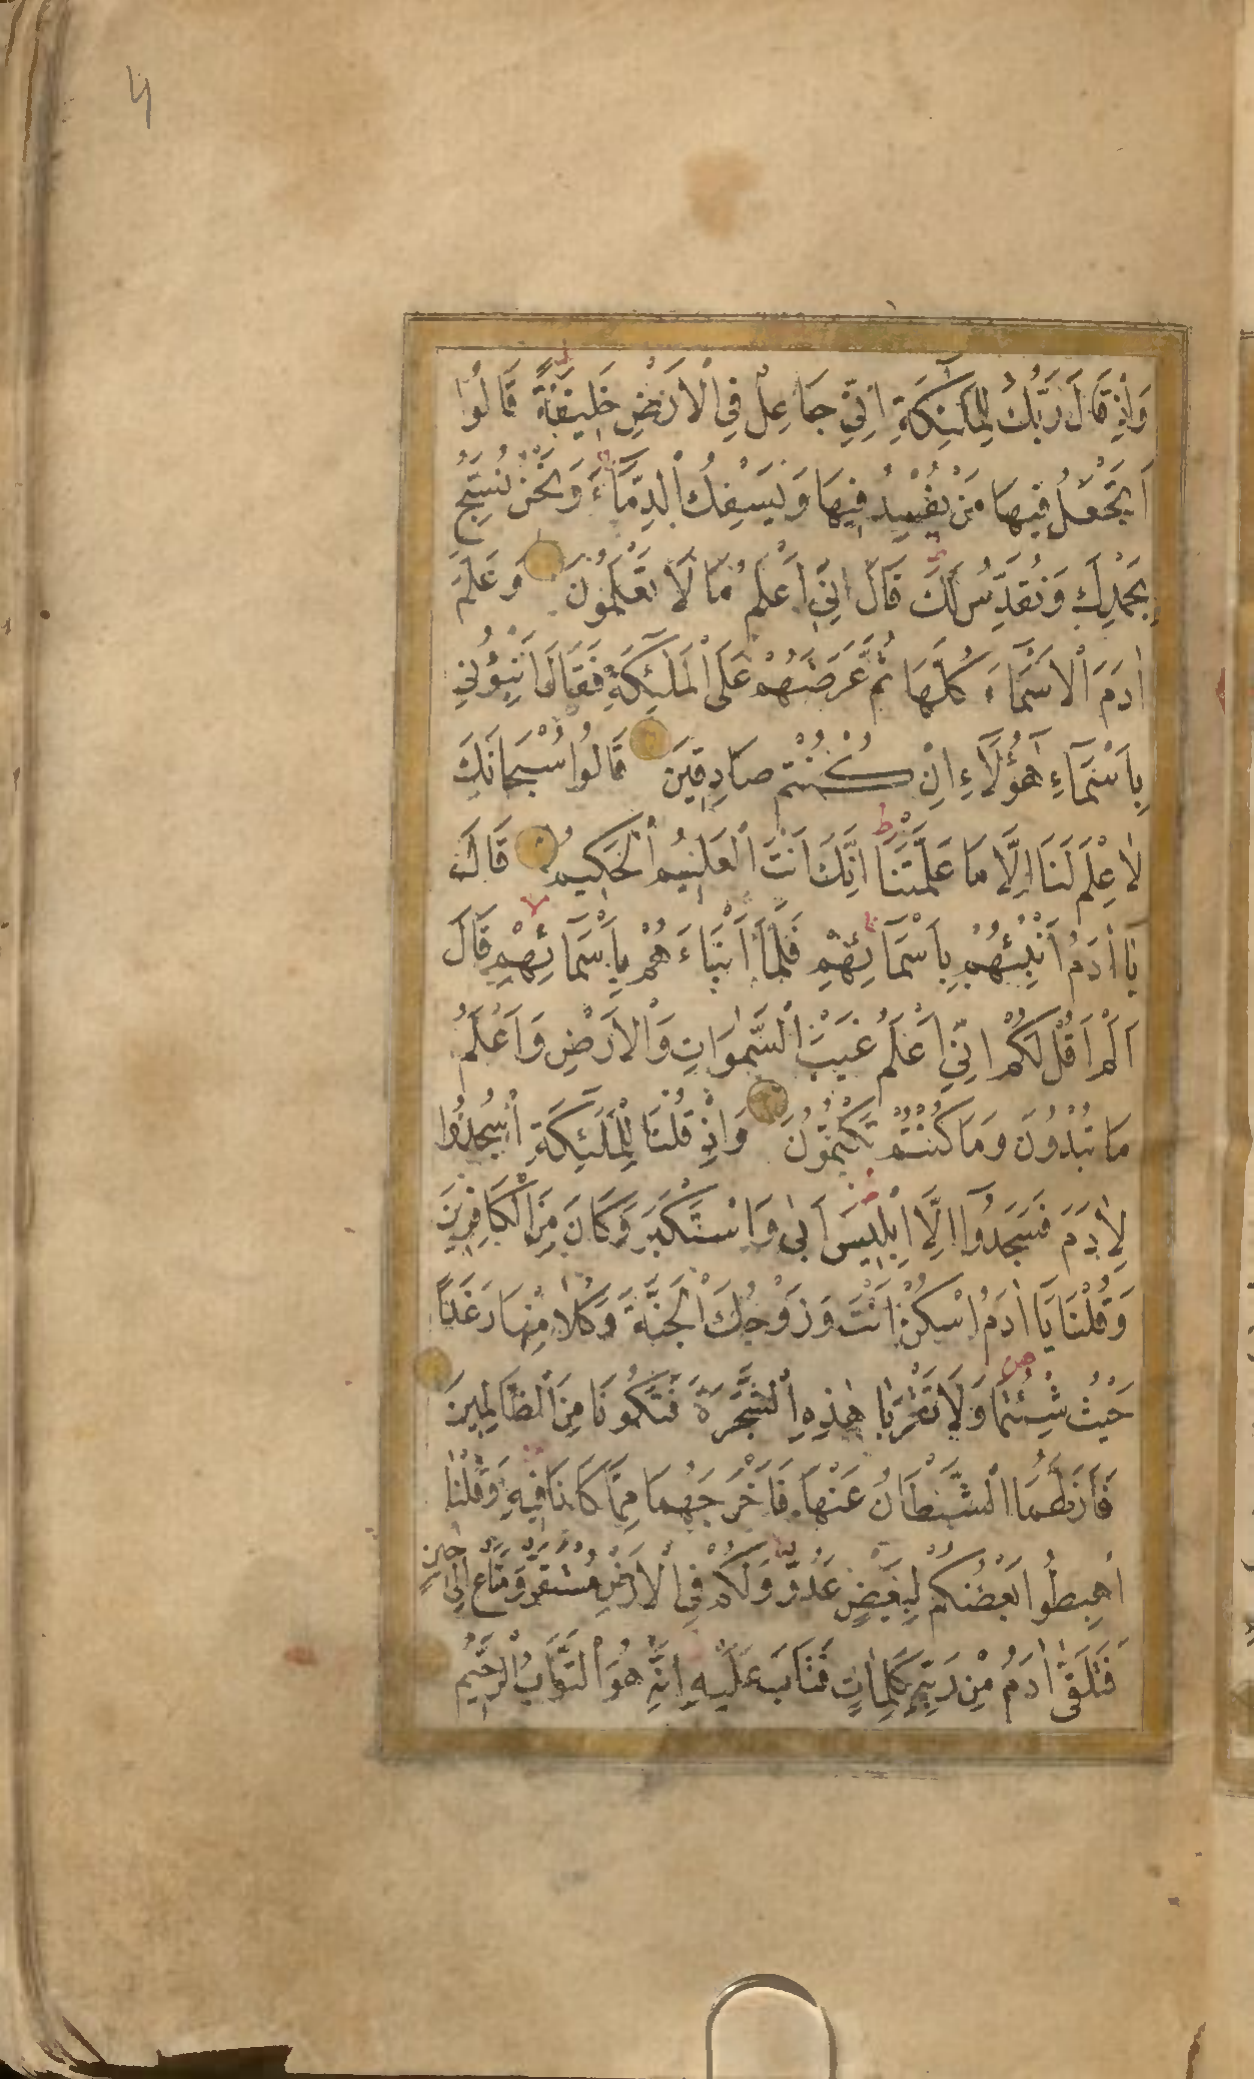 وَاِذْ قَالَ رَبُّكَ لِلْمَلٰٓئِكَةِ اِنّ۪ي جَاعِلٌ فِي الْاَرْضِ خَل۪يفَةً قَالُوا
اَتَجْعَلُ ف۪يهَا مَنْ يُفْسِدُ ف۪يهَا وَيَسْفِكُ الدِّمَٓاءَ وَنَحْنُ نُسَبِّحُ
بِحَمْدِكَ وَنُقَدِّسُ لَكَ قَالَ اِنّ۪ٓي اَعْلَمُ مَا لَا تَعْلَمُونَ وَعَلَّمَ
اٰدَمَ الْاَسْمَٓاءَ كُلَّهَا ثُمَّ عَرَضَهُمْ عَلَى الْمَلٰٓئِكَةِ فَقَالَ اَنْبِؤُن۪ي
بِاَسْمَٓاءِ هٰٓؤُلَٓاءِ اِنْ كُنْتُمْ صَادِق۪ينَ قَالُوا سُبْحَانَكَ
لَا عِلْمَ لَنَا اِلَّا مَا عَلَّمْتَنَا اِنَّكَ اَنْتَ الْعَل۪يمُ الْحَك۪يمُ قَالَ
يَا اٰدَمُ اَنْبِئْهُمْ بِاَسْمَٓائِهِمْ فَلَمَّٓا اَنْبَاَءَهُمْ بِاَسْمَٓائِهِمْ قَالَ
اَلَمْ اَقُلْ لَكُمْ اِنّ۪ٓي اَعْلَمُ غَيْبَ السَّمٰوَاتِ وَالْاَرْضِ وَاَعْلَمُ
مَا تُبْدُونَ وَمَا كُنْتُمْ تَكْتُمُونَ وَاِذْ قُلْنَا لِلْمَلٰٓئِكَةِ اسْجُدُوا
لِاٰدَمَ فَسَجَدُٓوا اِلَّٓا اِبْل۪يسَ اَبٰى وَاسْتَكْبَرَ وَكَانَ مِنَ الْكَافِر۪ينَ
وَقُلْنَا يَٓا اٰدَمُ اسْكُنْ اَنْتَ وَزَوْجُكَ الْجَنَّةَ وَكُلَا مِنْهَا رَغَدًا
حَيْثُ شِئْتُمَا وَلَا تَقْرَبَا هٰذِهِ الشَّجَرَةَ فَتَكُونَا مِنَ الظَّالِم۪ينَ
فَاَزَلَّهُمَا الشَّيْطَانُ عَنْهَا فَاَخْرَجَهُمَا مِمَّا كَانَا ف۪يهِ وَقُلْنَا
اهْبِطُوا بَعْضُكُمْ لِبَعْضٍ عَدُوٌّ وَلَكُمْ فِي الْاَرْضِ مُسْتَقَرٌّ وَمَتَاعٌ اِلٰى ح۪ينٍ
فَتَلَقّٰٓى اٰدَمُ مِنْ رَبِّه۪ كَلِمَاتٍ فَتَابَ عَلَيْهِ اِنَّهُ هُوَ التَّوَّابُ الرَّح۪يمُ